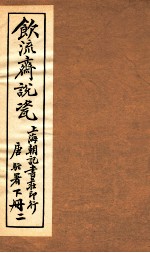 飲流齋說瓷
上海朝記書莊印行
唐駝署下册二